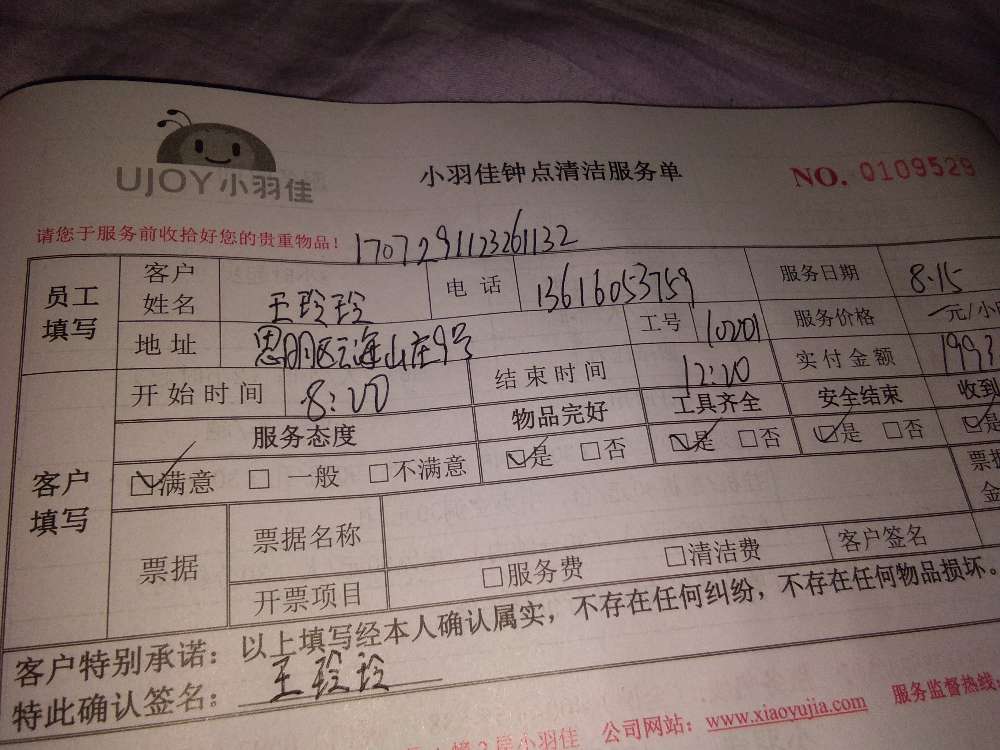 UJOY小羽佳
小羽佳钟点清洁服务单
NO. 0109529
请您于服务前收拾好您的贵重物品！
1707291123261132
员工填写 客户姓名 王玲玲 电话 13616053759 服务日期 8.15
地址 思明区云海山庄9号 工号 10201 服务价格 元/小
客户填写 开始时间 8:00 结束时间 12:00 实付金额 1993
服务态度 物品完好 工具齐全 安全结束 收到
☑满意 □一般 □不满意 ☑是 □否 ☑是 □否 ☑是 □否 ☑是
票据 票据名称 票据
金
开票项目 □服务费 □清洁费 客户签名
客户特别承诺：以上填写经本人确认属实，不存在任何纠纷，不存在任何物品损坏。
特此确认签名：王玲玲
小羽佳 公司网站：www.xiaoyujia.com 服务监督热线：